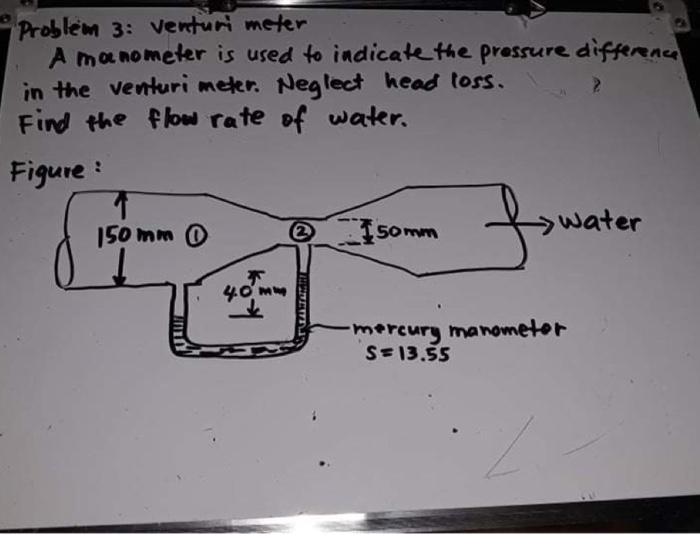 Problem 3: venturi meter
A manometer is used to indicate the pressure difference
in the venturi meter. Neglect head loss.
Find the flow rate of water.
Figure:
150 mm ① ② 50mm → water
40 mm
mercury manometer
S = 13.55